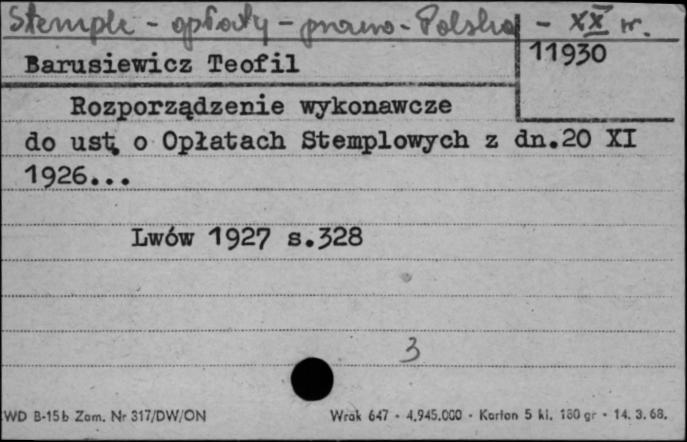 Stemple - opłaty - prawo - Polska - XX w.
Barusiewicz Teofil
11930
Rozporządzenie wykonawcze
do ust. o Opłatach Stemplowych z dn.20 XI
1926...
Lwów 1927 s.328
3
WD B-15b Zam. Nr 317/DW/ON
Wrak 647 - 4.945.000 - Karton 5 kl. 180 gr - 14. 3. 68.